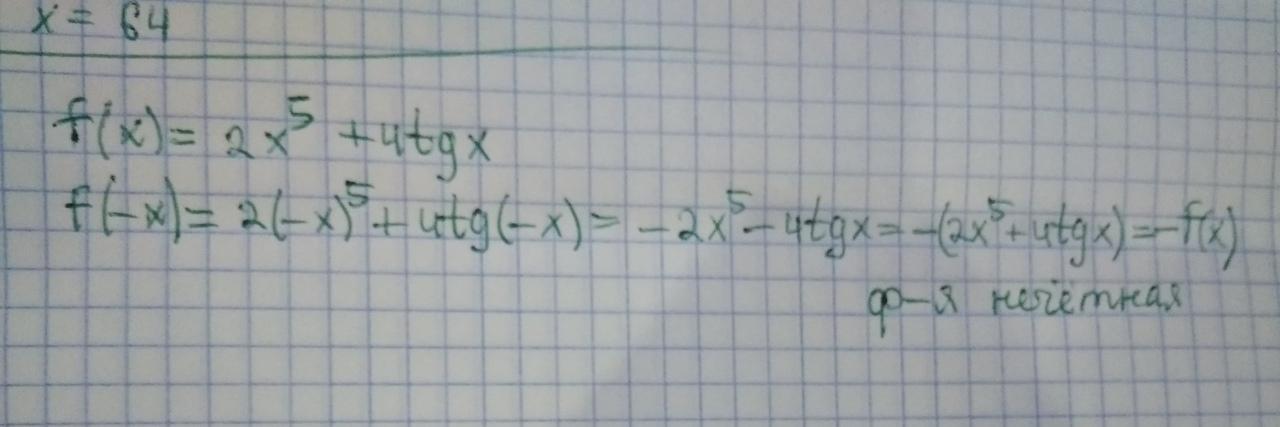 x = 64
f(x) = 2x⁵ + 4tgx
f(-x) = 2(-x)⁵ + 4tg(-x) = -2x⁵ - 4tgx = -(2x⁵ + 4tgx) = -f(x)
ф-я нечётная